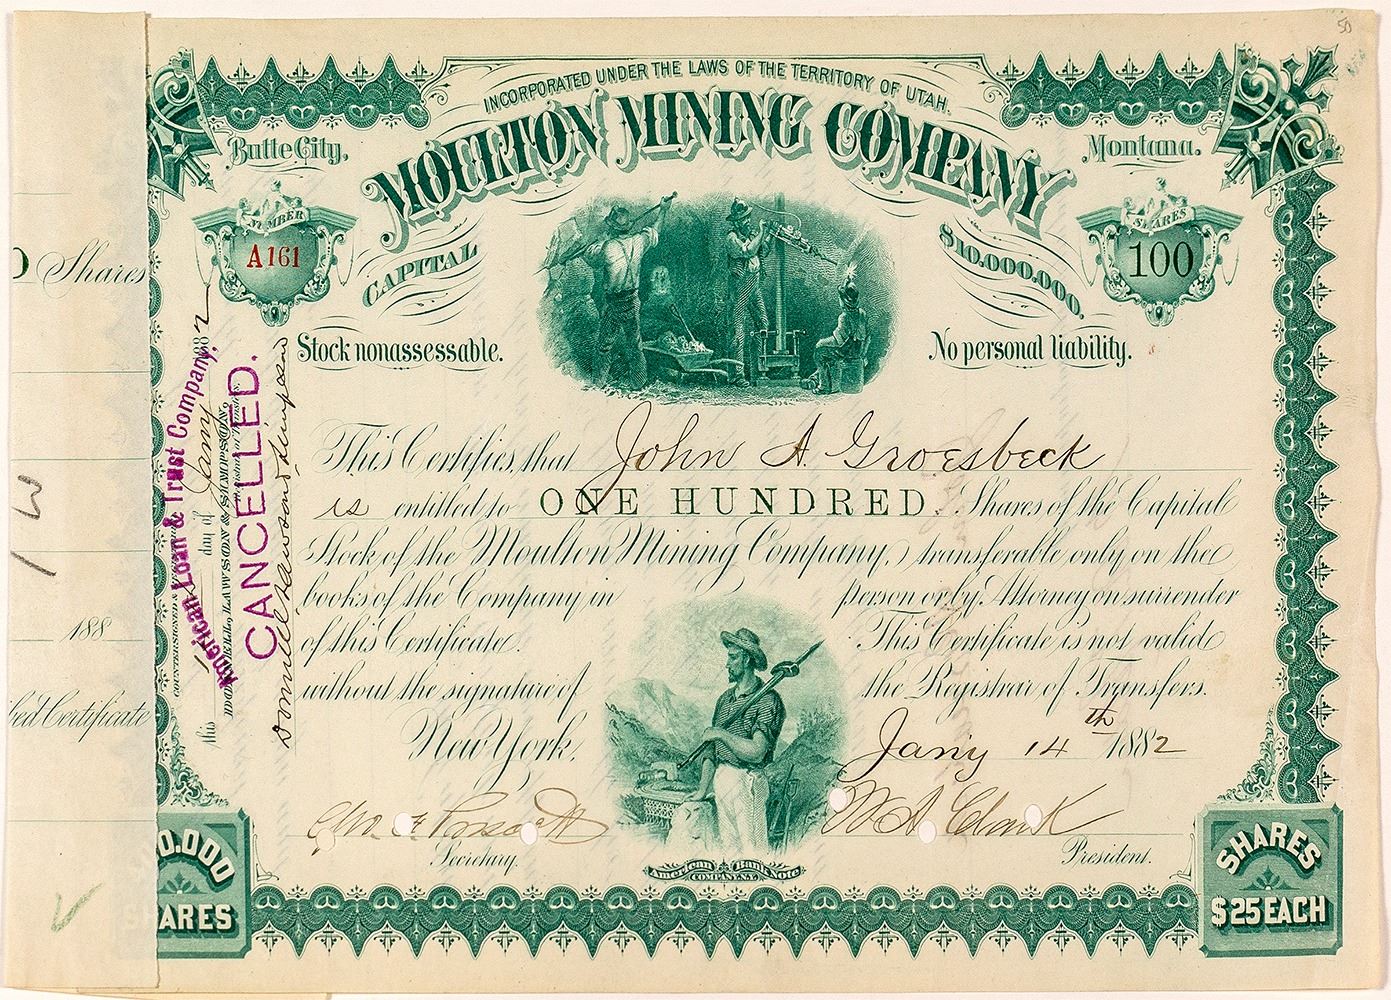 50
INCORPORATED UNDER THE LAWS OF THE TERRITORY OF UTAH.
MOULTON MINING COMPANY
Butte City,
Montana.
NUMBER
A161
CAPITAL
$10.000.000.
SHARES
100
Stock nonassessable.
No personal liability.
This Certifies, that John A. Groesbeck
is entitled to ONE HUNDRED. Shares of the Capital
Stock of the Moulton Mining Company, transferable only on the
books of the Company in person or by Attorney on surrender
of this Certificate. This Certificate is not valid
without the signature of the Registrar of Transfers.
New York, Jan'y 14th 1882
W A Clark
Secretary.
President.
American Bank Note
COMPANY N.Y.
0.000
SHARES
SHARES
$25 EACH
American Loan & Trust Company.
CANCELLED.
This day of Jany 1882
Shares
188
Certificate